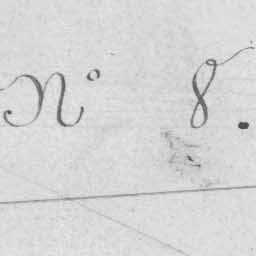 N° 8.